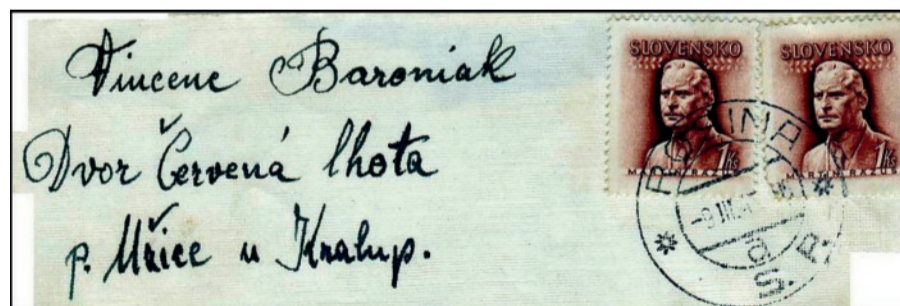 Vincenc Baroniak
Dvor Červená lhota
p. Mřice u Kralup.
SLOVENSKO
1 Ks
MARTIN RÁZUS
SLOVENSKO
1 Ks
MARTIN RÁZUS